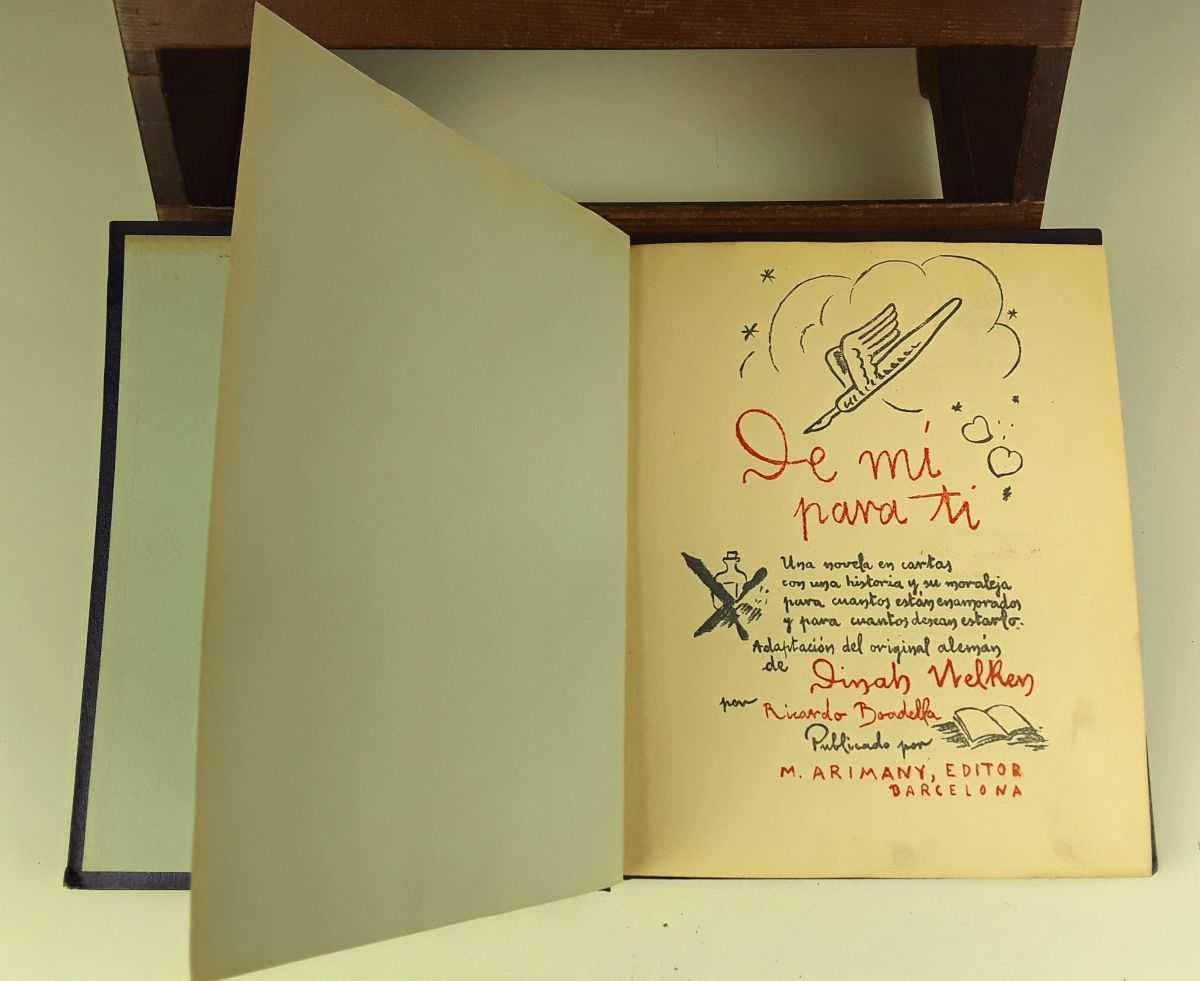 De mí
para ti
Una novela en cartas
con una historia y su moraleja
para cuantos están enamorados
y para cuantos desean estarlo.
Adaptación del original alemán
de Dinah Nelken
por Ricardo Boadella
Publicado por
M. ARIMANY, EDITOR
BARCELONA